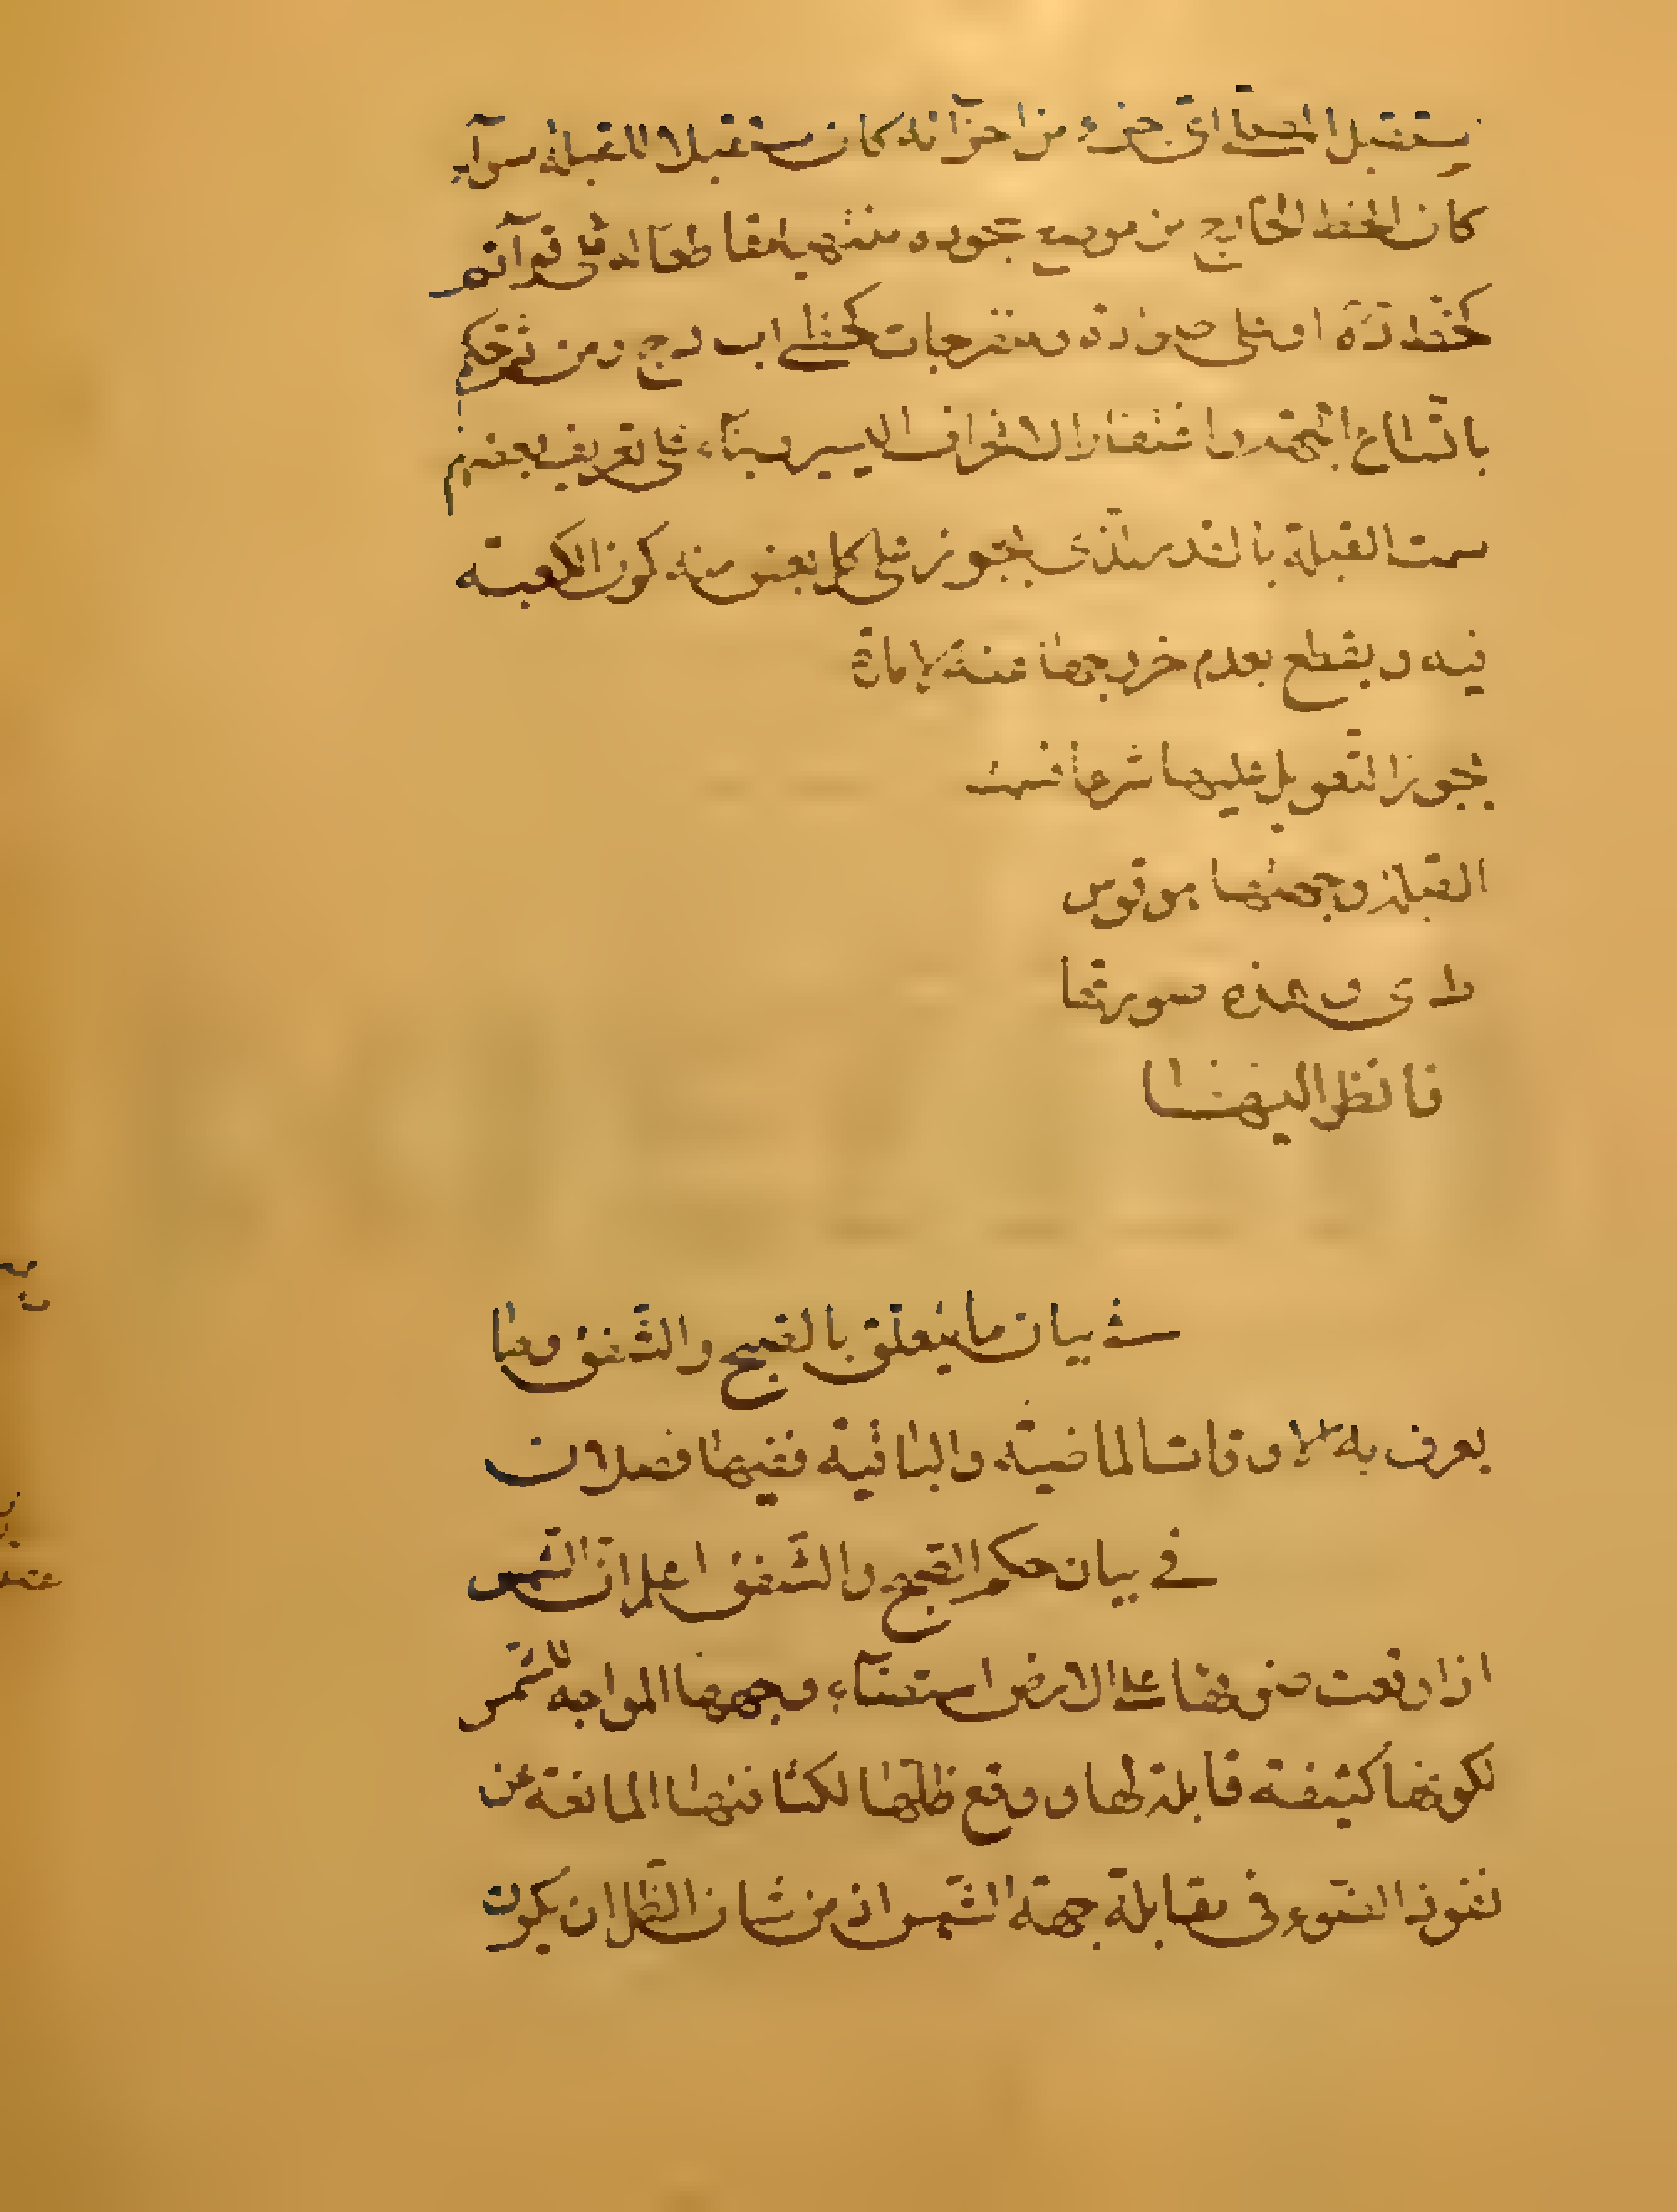 يستقبل المصلي اي جزء من اجزآئه كان مستقبلا للقبلة سوآء
كان الخط الخارج من موضع سجوده منتهيا مقاطعا له على قوآئم
كخط دَه او على حوادة ومنفرجات كخطي اب دج ومن ثم حكم
باتساع الجهة واغتفار الانحراف اليسير وبنآء على تعريف بعضهم
سمت القبلة بالقدر الذى يجوز على كل بعض منه كون الكعبة
فيه ويقطع بعدم خروجها عنه لامارة
يجوز التعويل عليها شرعا فسمت
القبلة وجهتها هو قوس
ط ى وهذه صورتها
فانظر اليها
في بيان ما يتعلق بالصبح والشفق وما
يعرف به الاوقات الماضية والباقية ففيها فصلان
في بيان حكم الصبح والشفق اعلم ان الشمس
اذا وقعت ضوءها على الارض استضآء وجهها المواجه للشمس
لكونها كثيفة قابلة لها ووقع ظلها لكثافتها المانعة عن
نفوذ الضوء في مقابلة جهة الشمس اذ من شان الظل ان يكون